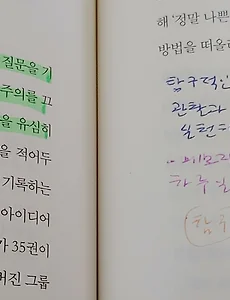 질문을 기
주의를 끄
을 유심히
을 적어두
기록하는
아이디어
가 35권이
버진 그룹
해 '정말 나쁜
방법을 떠올리
탐구적인
관찰과
실천
메모
하루 일
탐구